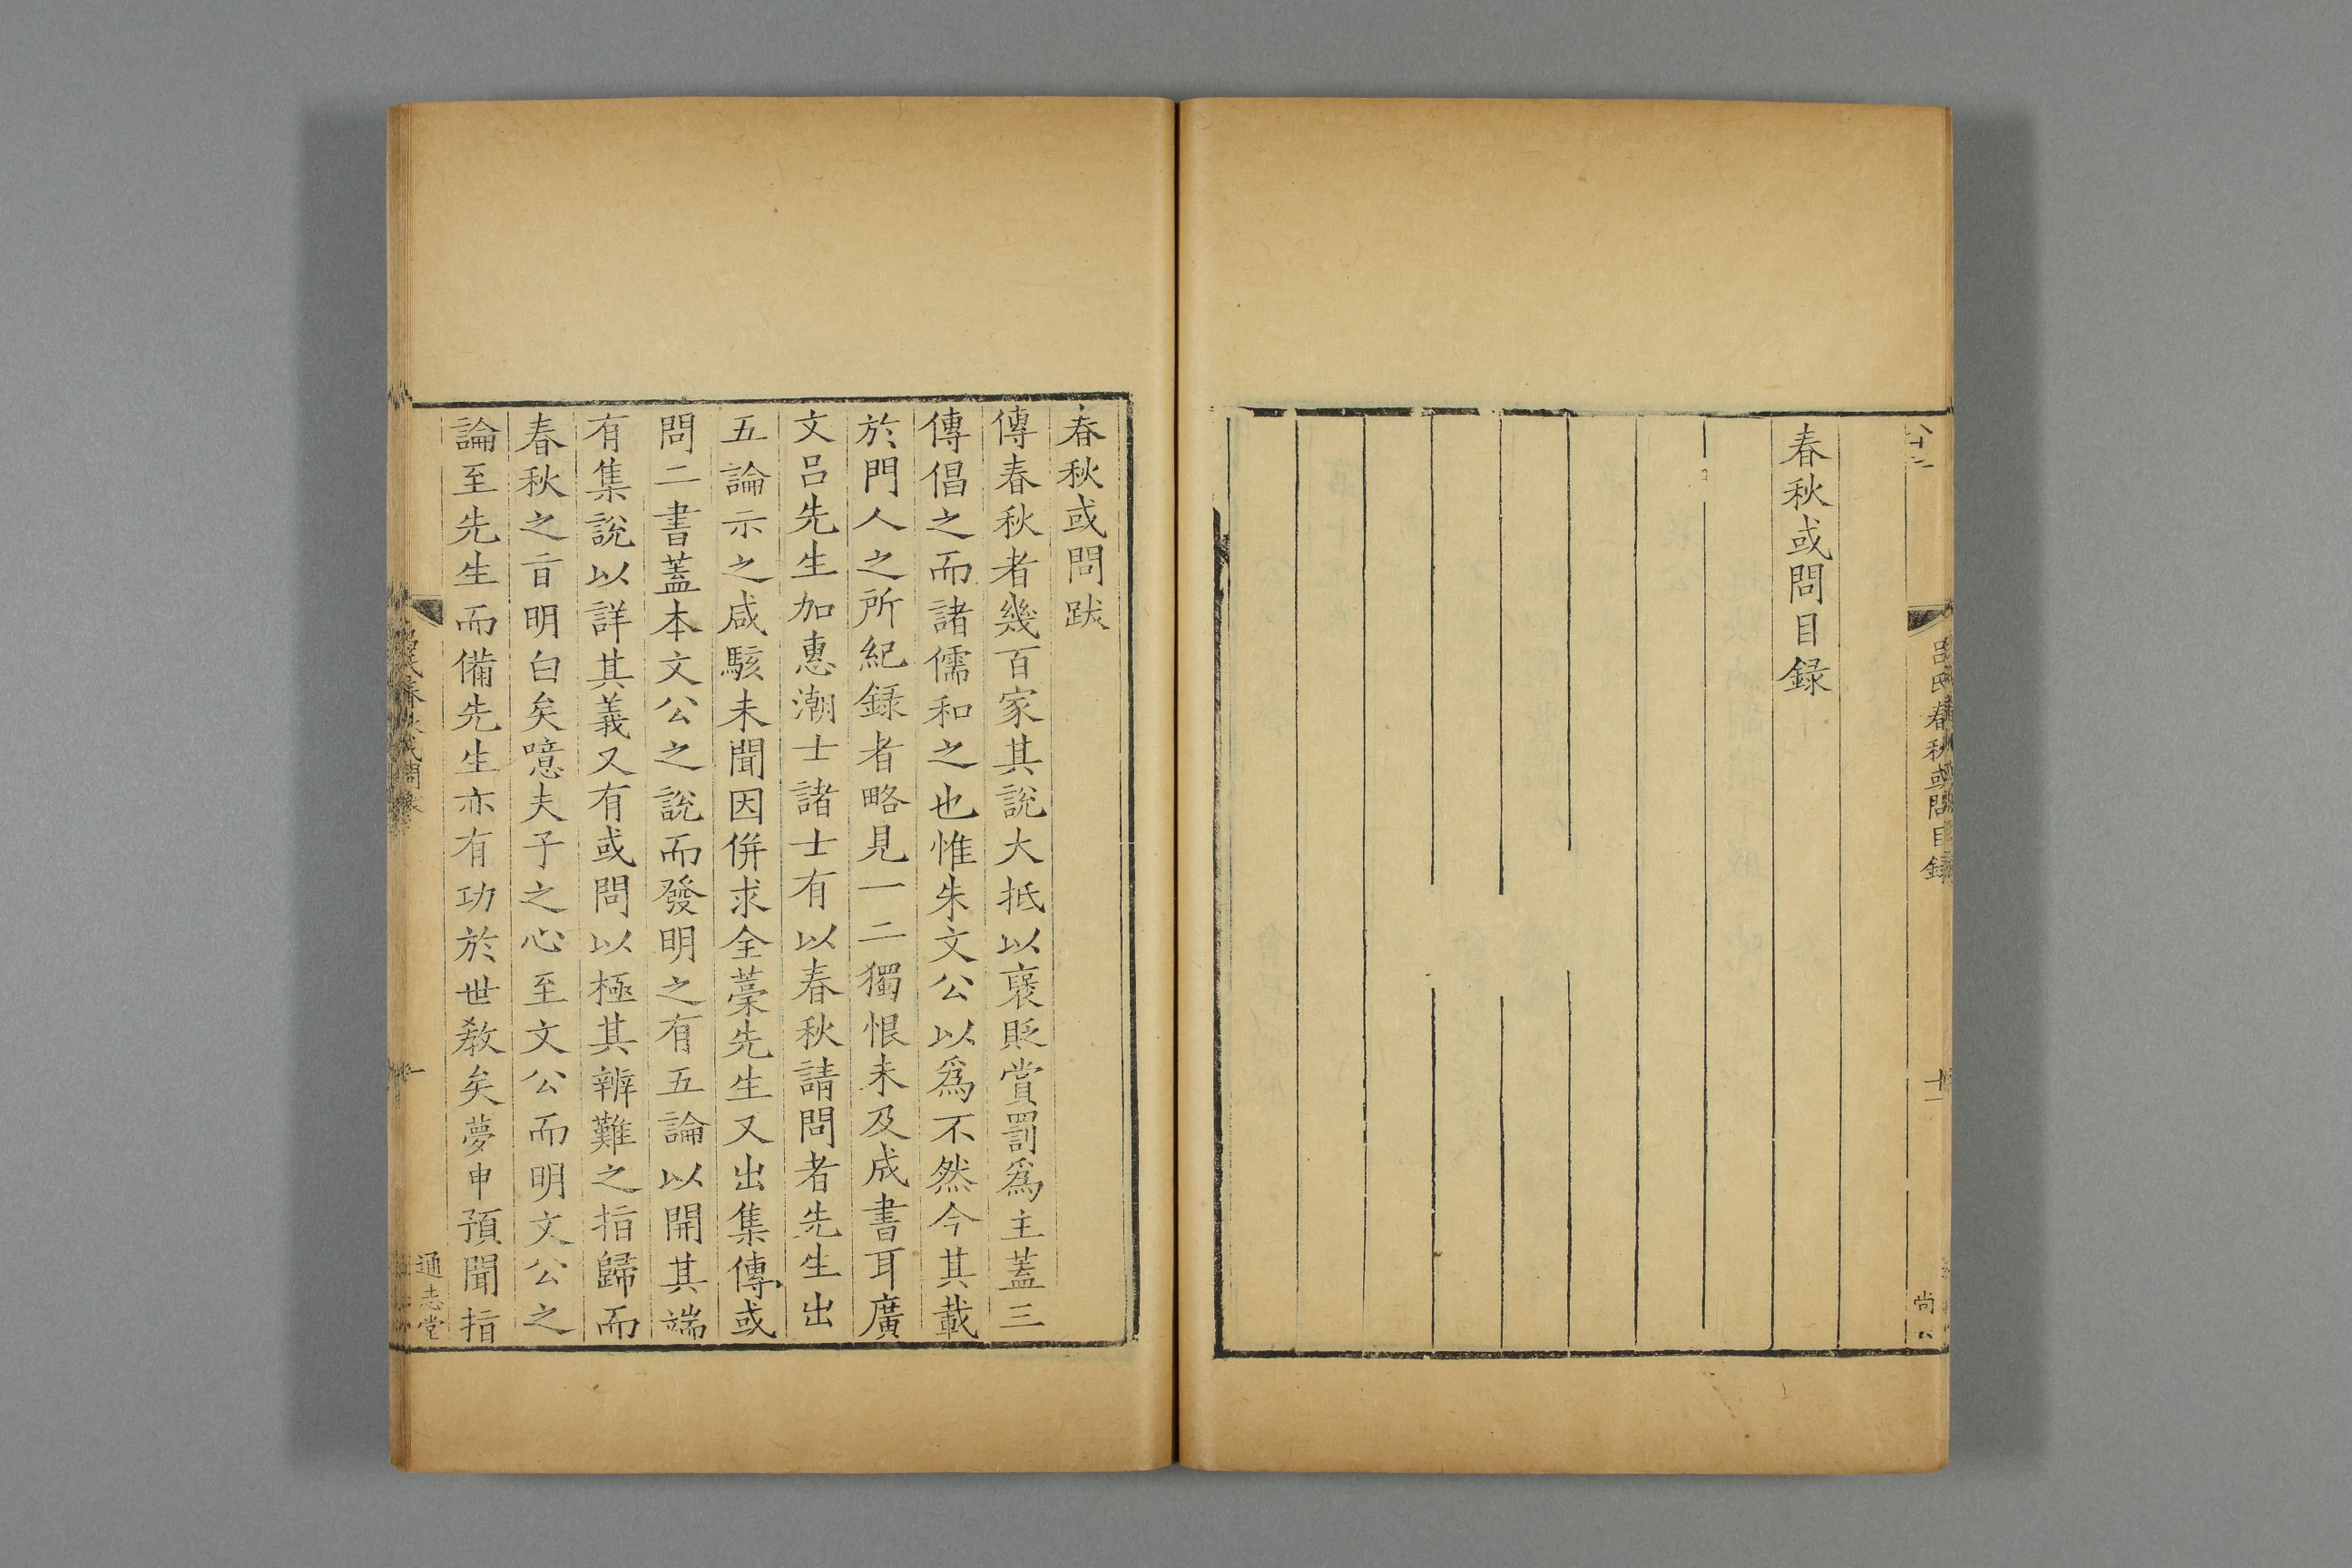 春秋或問目録
八十二
呂氏春秋或問目録
十一
尚
春秋或問跋
傳春秋者幾百家其說大抵以襃貶賞罰爲主蓋三
傳倡之而諸儒和之也惟朱文公以爲不然今其載
於門人之所紀録者略見一二獨恨未及成書耳廣
文呂先生加惠潮士諸士有以春秋請問者先生出
五論示之咸駭未聞因併求全藁先生又出集傳或
問二書蓋本文公之說而發明之有五論以開其端
有集說以詳其義又有或問以極其辨難之指歸而
春秋之㫖明白矣噫夫子之心至文公而明文公之
論至先生而備先生亦有功於世敎矣夢申預聞指
春秋或問
一
通志堂